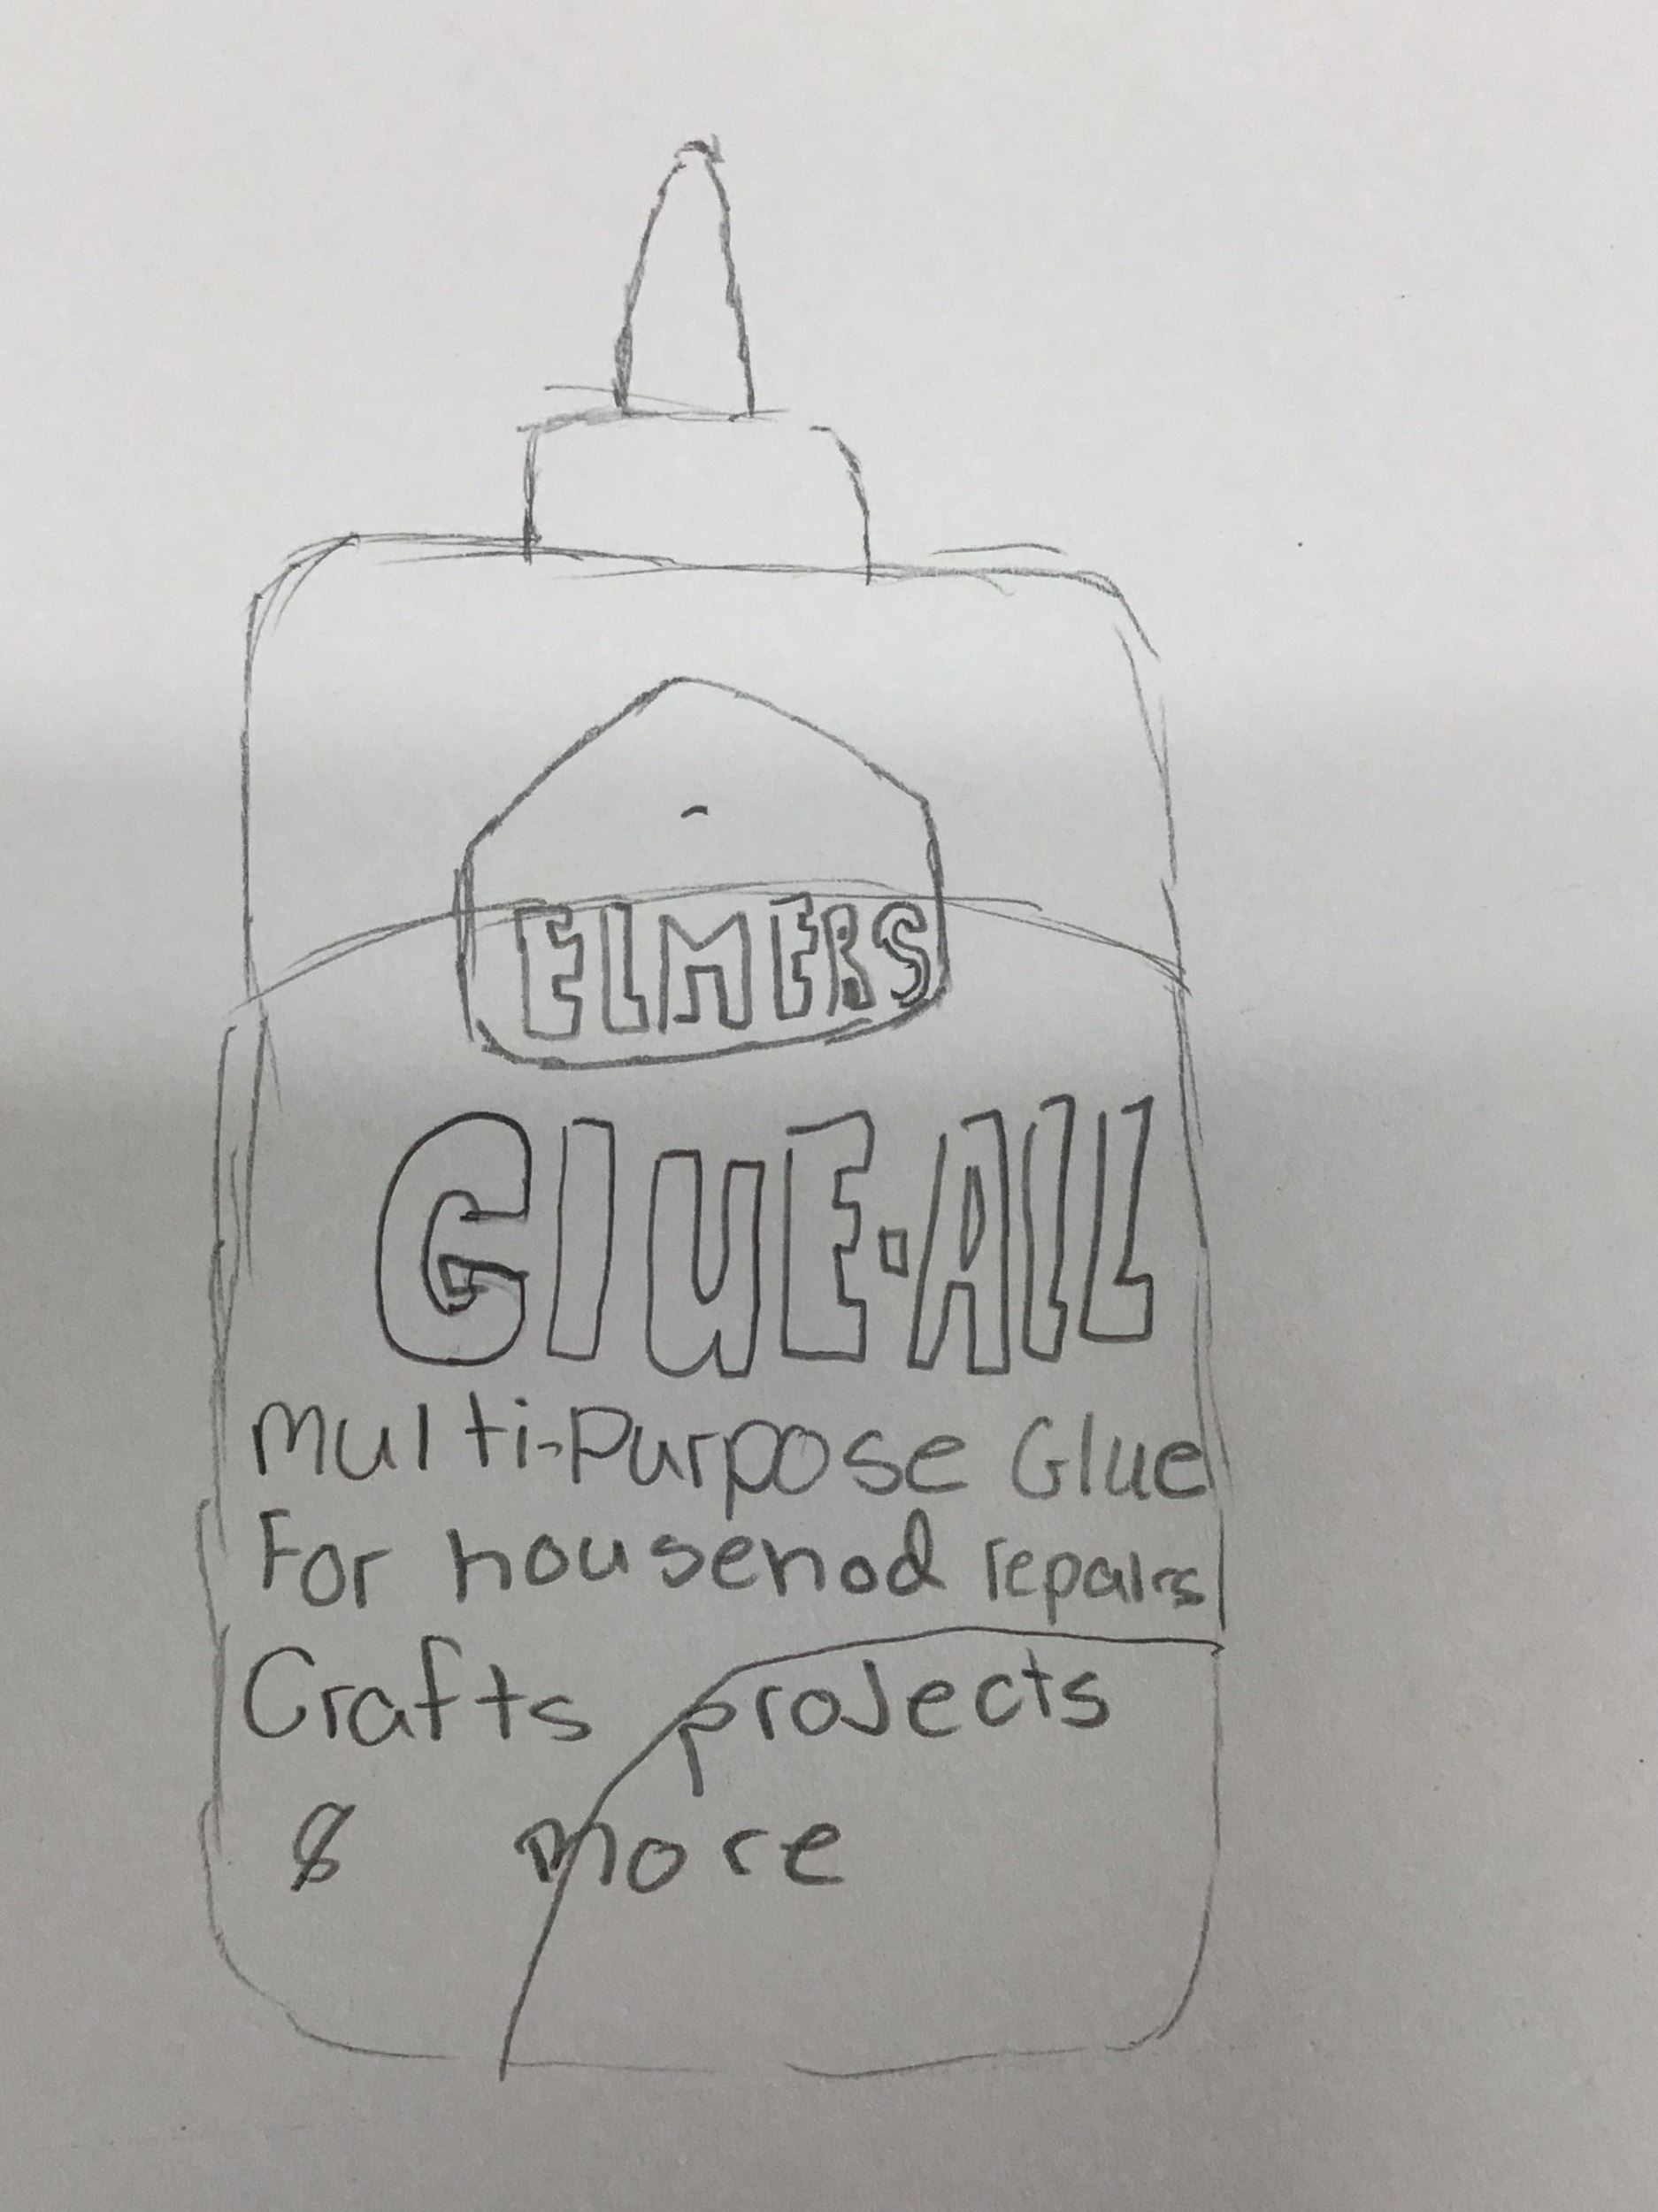 ELMERS
GlUE-All
Multi-Purpose Glue
For househod repairs
Crafts projects
& more